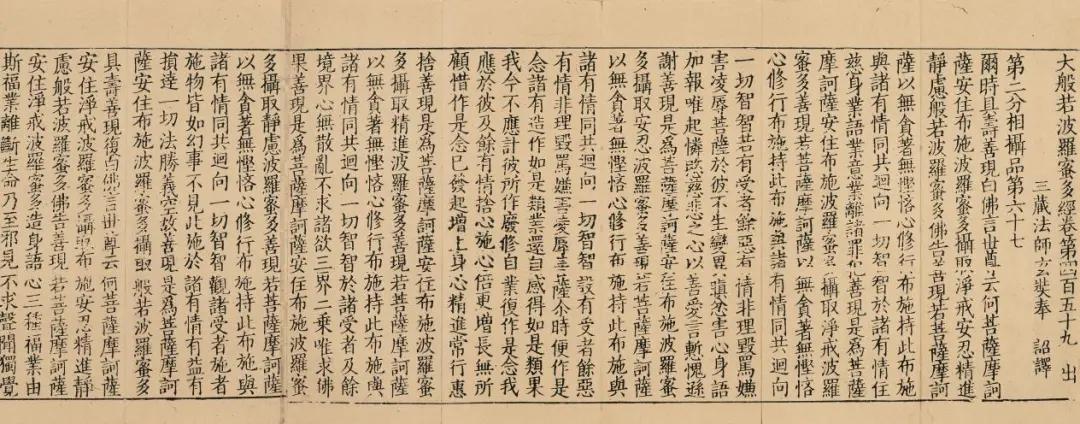 大般若波羅蜜多經卷第四百五十九 出
三藏法師玄奘奉 詔譯
第二分相攝品第六十七
爾時具壽善現白佛言世尊云何菩薩摩訶
薩安住布施波羅蜜多攝取淨戒安忍精進
靜慮般若波羅蜜多佛告善現若菩薩摩訶
薩以無貪著無慳悋心修行布施持此布施
與諸有情同共迴向一切智智於諸有情住
慈身業語業意業離諸罪犯善現是為菩薩
摩訶薩安住布施波羅蜜多攝取淨戒波羅
蜜多善現若菩薩摩訶薩以無貪著無慳悋
心修行布施持此布施與諸有情同共迴向
一切智智若有受者餘惡有情非理毀罵嫌
害凌辱菩薩於彼不生變異瞋忿害心身語
加報唯起憐愍慈悲之心以善愛言慙愧遜
謝善現是為菩薩摩訶薩安住布施波羅蜜
多攝取安忍波羅蜜多善現若菩薩摩訶薩
以無貪著無慳悋心修行布施持此布施與
諸有情同共迴向一切智智設有受者餘惡
有情非理毀罵嫌害凌辱菩薩尒時便作是
念諸有造作如是類業還自感得如是類果
我今不應計彼所作廢修自業復作是念我
應於彼及餘有情捨心施心倍更增長無所
顧惜作是念已發起增上身心精進常行惠
捨善現是為菩薩摩訶薩安住布施波羅蜜
多攝取精進波羅蜜多善現若菩薩摩訶薩
以無貪著無慳悋心修行布施持此布施與
諸有情同共迴向一切智智於諸受者及餘
境界心無散亂不求諸欲三界二乘唯求佛
果善現是為菩薩摩訶薩安住布施波羅蜜
多攝取靜慮波羅蜜多善現若菩薩摩訶薩
以無貪著無慳悋心修行布施持此布施與
諸有情同共迴向一切智智觀諸受者施者
施物皆如幻事不見此施於諸有情有益有
損達一切法勝義空故善現是為菩薩摩訶
薩安住布施波羅蜜多攝取般若波羅蜜多
具壽善現復白佛言世尊云何菩薩摩訶薩
安住淨戒波羅蜜多攝取布施安忍精進靜
慮般若波羅蜜多佛告善現若菩薩摩訶薩
安住淨戒波羅蜜多造身語心三種福業由
斯福業離斷生命乃至邪見不求聲聞獨覺